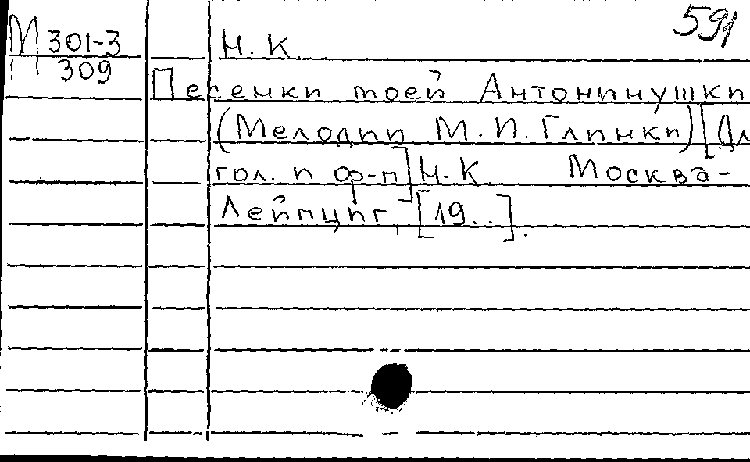 591
М 301-3
309
Н. К.
Песенки моей Антонинушки
(Мелодии М. И. Глинки) [Дл
гол. и ф-п] Н. К. Москва-
Лейпциг, [19..].